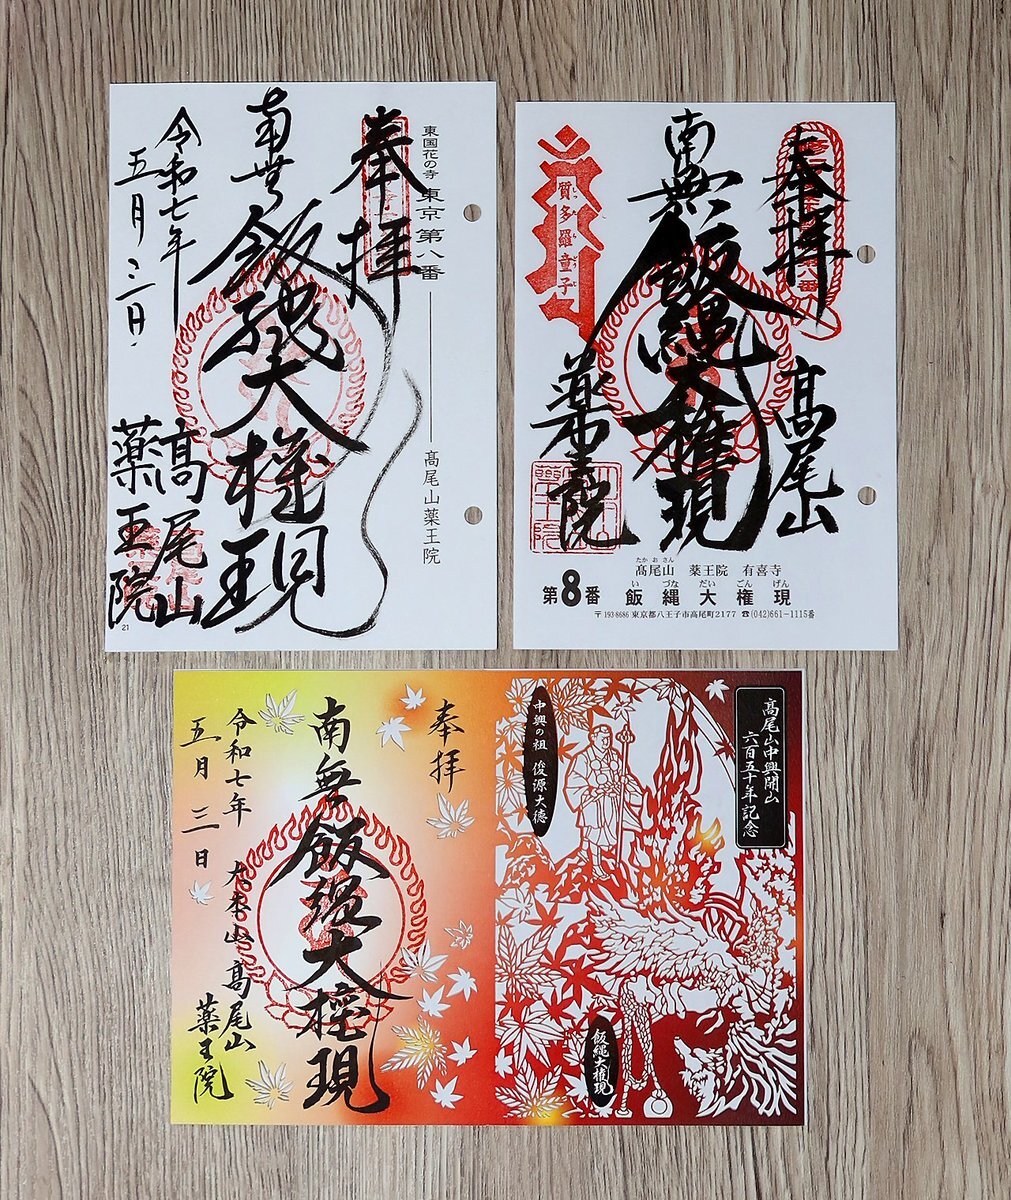 奉拝
東国花の寺 東京第八番 高尾山薬王院
南無
飯縄大権現
令和七年
五月三日
高尾山
薬王院
21
奉拝
南無
飯縄大権現
質多羅童子
高尾山
薬王院
たかおさん
髙尾山 薬王院 有喜寺
い づな だい ごん げん
第8番 飯縄大権現
〒193-8686 東京都八王子市高尾町2177 ☎(042)661-1115番
高尾山中興開山
六百五十年記念
中興の祖 俊源大徳
飯縄大権現
奉拝
南無飯縄大権現
令和七年
五月三日
大本山高尾山
薬王院